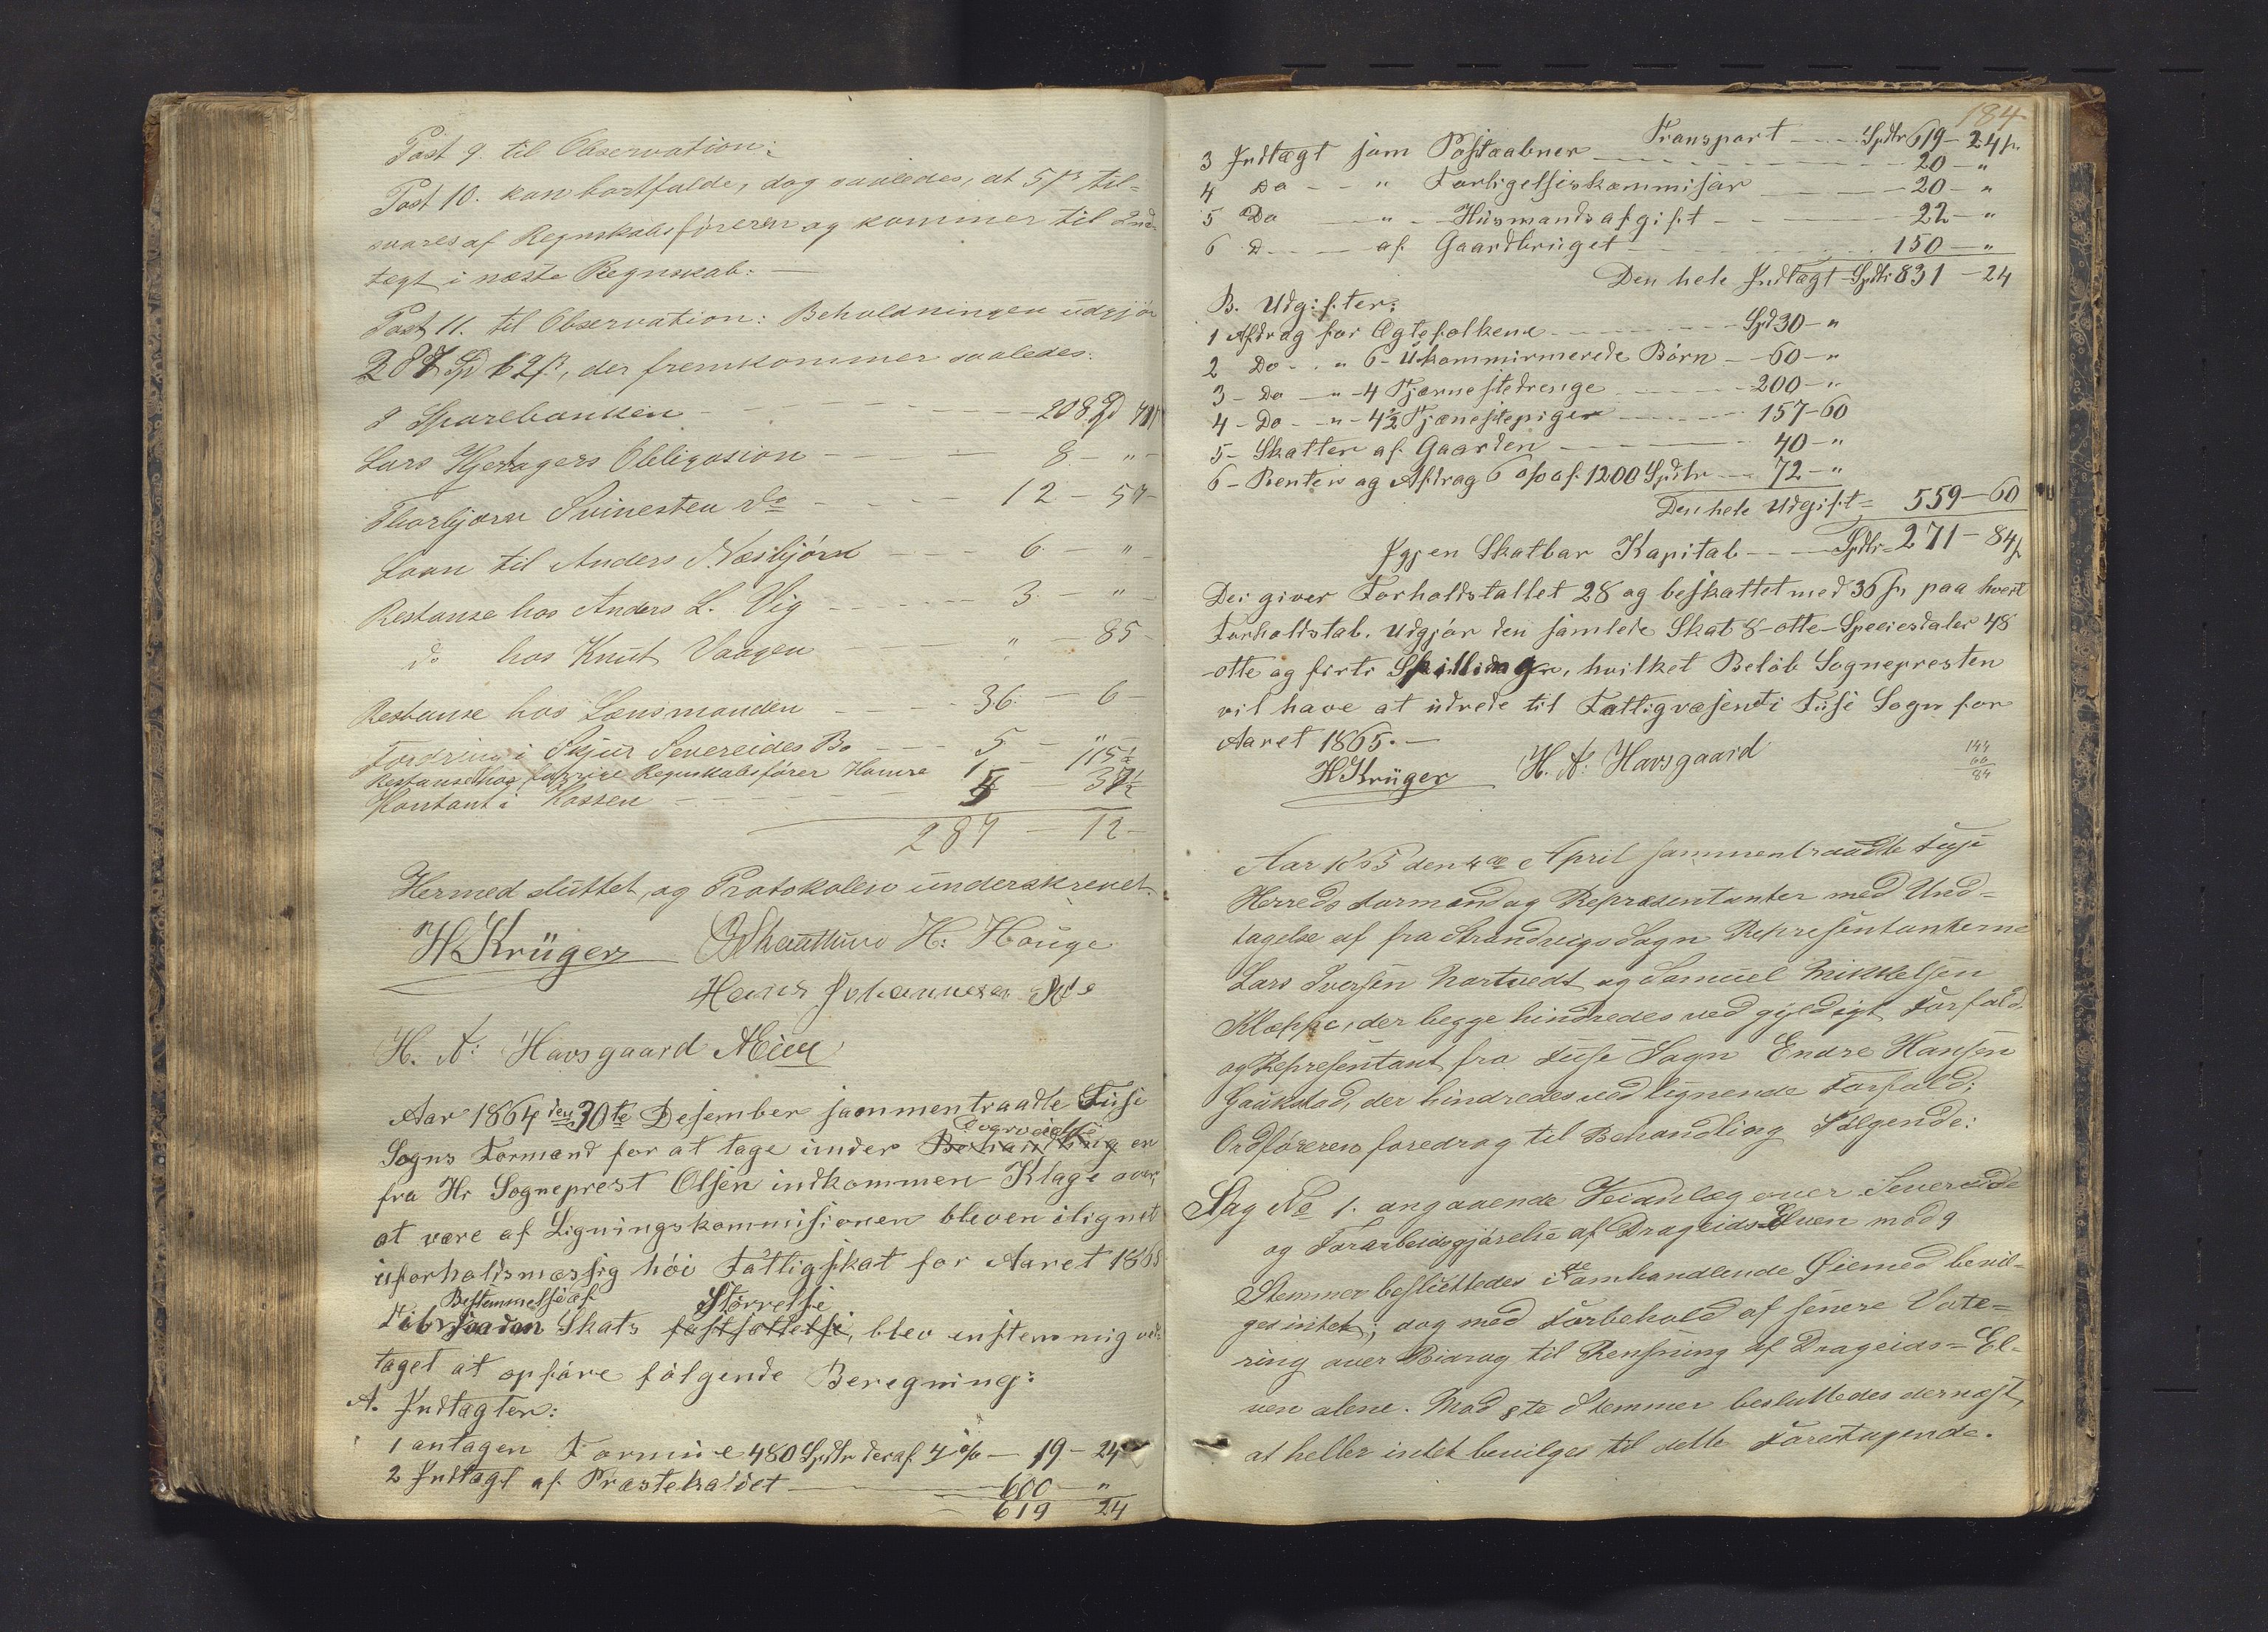 Post 9. til Observation:
Post 10. kan bortfalde, dog saaledes, at 5 ß til-
svares af Regnskabsføreren og kommer til Ind-
tegt i næste Regnskab. —
Post 11. til Observation: Beholdningen udgjør
287 Sp 12 ß, der fremkommer saaledes:
I Sparebanken — 208 Sp
Lars Hjertagers Obligasion — 8 - " -
Thorbjørn Svinesten do — 12 - 57 -
Laan til Anders Næsbjørn — 6 - " -
Restanse hos Anders L. Vig — 3 - " -
do hos Knut Vaagen — " - 85 -
Restanse hos Lensmanden — 36 - 6 -
Fordring i Sjur Severeides Bo — 5 - " -
Restanse hos forrige Regnskabsfører Hamre 1 - 115½
Kontant i Kassen — 5 - 37½
287 - 12 -
Hermed sluttet, og Protokolen underskrevet.
H Krüger H: Hauge
Hans Johannesen
H. N: Havsgaard
Aar 1864 den 30te Desember sammentraadte Fuse
Sogns Formænd for at tage under Overveielse Behandling en
fra Hr Sogneprest Olsen indkommen Klage over,
at være af Ligningskommisionen bleven ilignet
uforholdsmæssig høi Fattigskat for Aaret 1865
Bestemmelse af Størrelse
Til saadan Skats fastsættelse, blev enstemmig ved-
taget at opføre følgende Beregning:
A. Indtægter:
1 antagen Formue 480 Spdlr deraf 4 % — 19 - 24
2 Indtægt af Præstekaldet — 600 - "
619 24
184
Transport — Spdlr 619 - 24 ß
3 Indtægt som Postaabner — 20 - "
4 Do - " Forligelseskommisær — 20 - "
5 Do - " - Husmandsafgift — 22 - "
6 D — af Gaardbruget — 150 - "
Den hele Indtægt Spdlr 831 - 24
B. Udgifter:
1 Afdrag for Ægtefolkene — Spd 30 - "
2 Do - " 6 - Ukommirmerede Børn — 60 - "
3 - Do - " - 4 Tjærnestedrenge — 200 - "
4 - Do - " - 4½ Tjænestepiger — 157 - 60
5 - Skatter af Gaarden — 40 - "
6 - Renter og Afdrag 6 o/o af 1200 Spdlr — 72 - "
Den hele Udgift = 559 - 60
Igjen Skatbar Kapital — Spdlr = 271 - 84 ß
Det giver Forholdstallet 28 og beskattet med 36 ß, paa hvert
Forholdstal. Udgjør den samlede Skat 8 - otte - Speciesdaler 48
- otte og firti Skillinger, hvilket Beløb Sognepresten
vil have at udrede til Fattigvæsenet i Fuse Sogn for
Aaret 1865. —
H Krüger H. N: Havsgaard
144
60
84
Aar 1865 den 4de April sammentraadte Fuse
Herreds Formænd og Repræsentanter med Und-
tagelse af fra Strandvigs Sogn Repræsentanterne
Lars Iversen Hartvedt og Samuel Mikkelsen
Kleppe, der begge hindredes ved gyldigt Forfald,
og Repræsentant fra Fuse Sogn Endre Hansen
Gaukstad, der hindredes ved lignende Forfald:
Ordføreren foredrog til Behandling Følgende:
Sag No 1. angaaende Veianlæg over Severeide
og Forarbeidsgjørelse af Drageids-Elven mod 9
Stemmer besluttedes i omhandlende Øiemed bevil-
ges intet; dog med Forbehold af senere Vote-
ring over Bidrag til Rensning af Drageids-El-
ven alene. Mod 8te Stemmer besluttedes dernæst,
at heller intet bevilges til dette Foretagende.